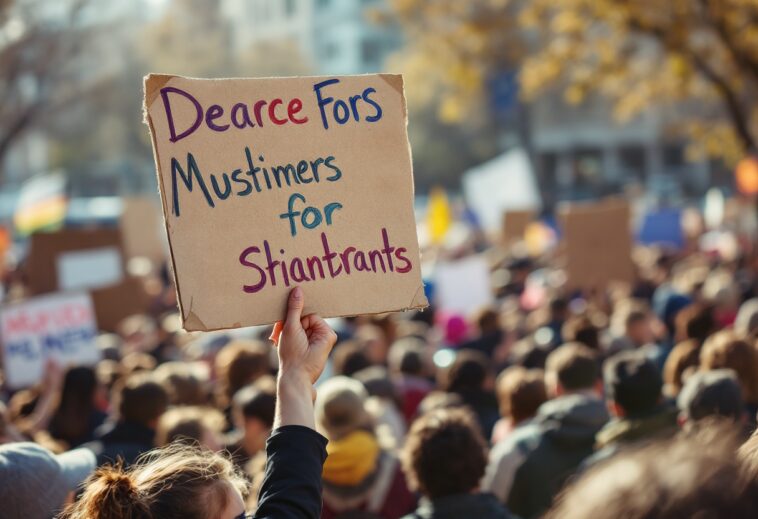 Dearce Fors
Mustimers
for
Stiantrants